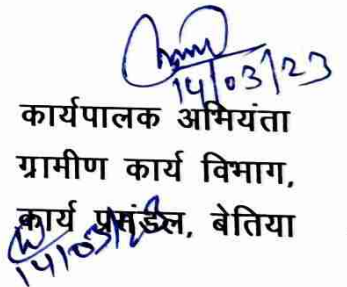 14/03/23
कार्यपालक अभियंता
ग्रामीण कार्य विभाग,
कार्य प्रमंडल, बेतिया
14/03/23